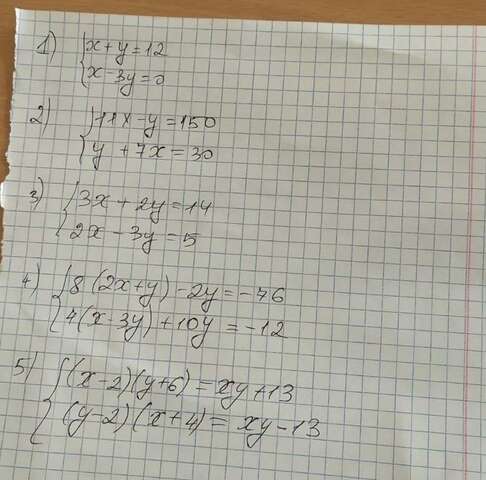 1) { x + y = 12
x - 3y = 0
2) { 11x - y = 150
y + 7x = 30
3) { 3x + 2y = 14
2x - 3y = 5
4) { 8(2x+y) - 2y = -76
4(x-3y) + 10y = -12
5) { (x-2)(y+6) = xy+13
(y-2)(x+4) = xy-13